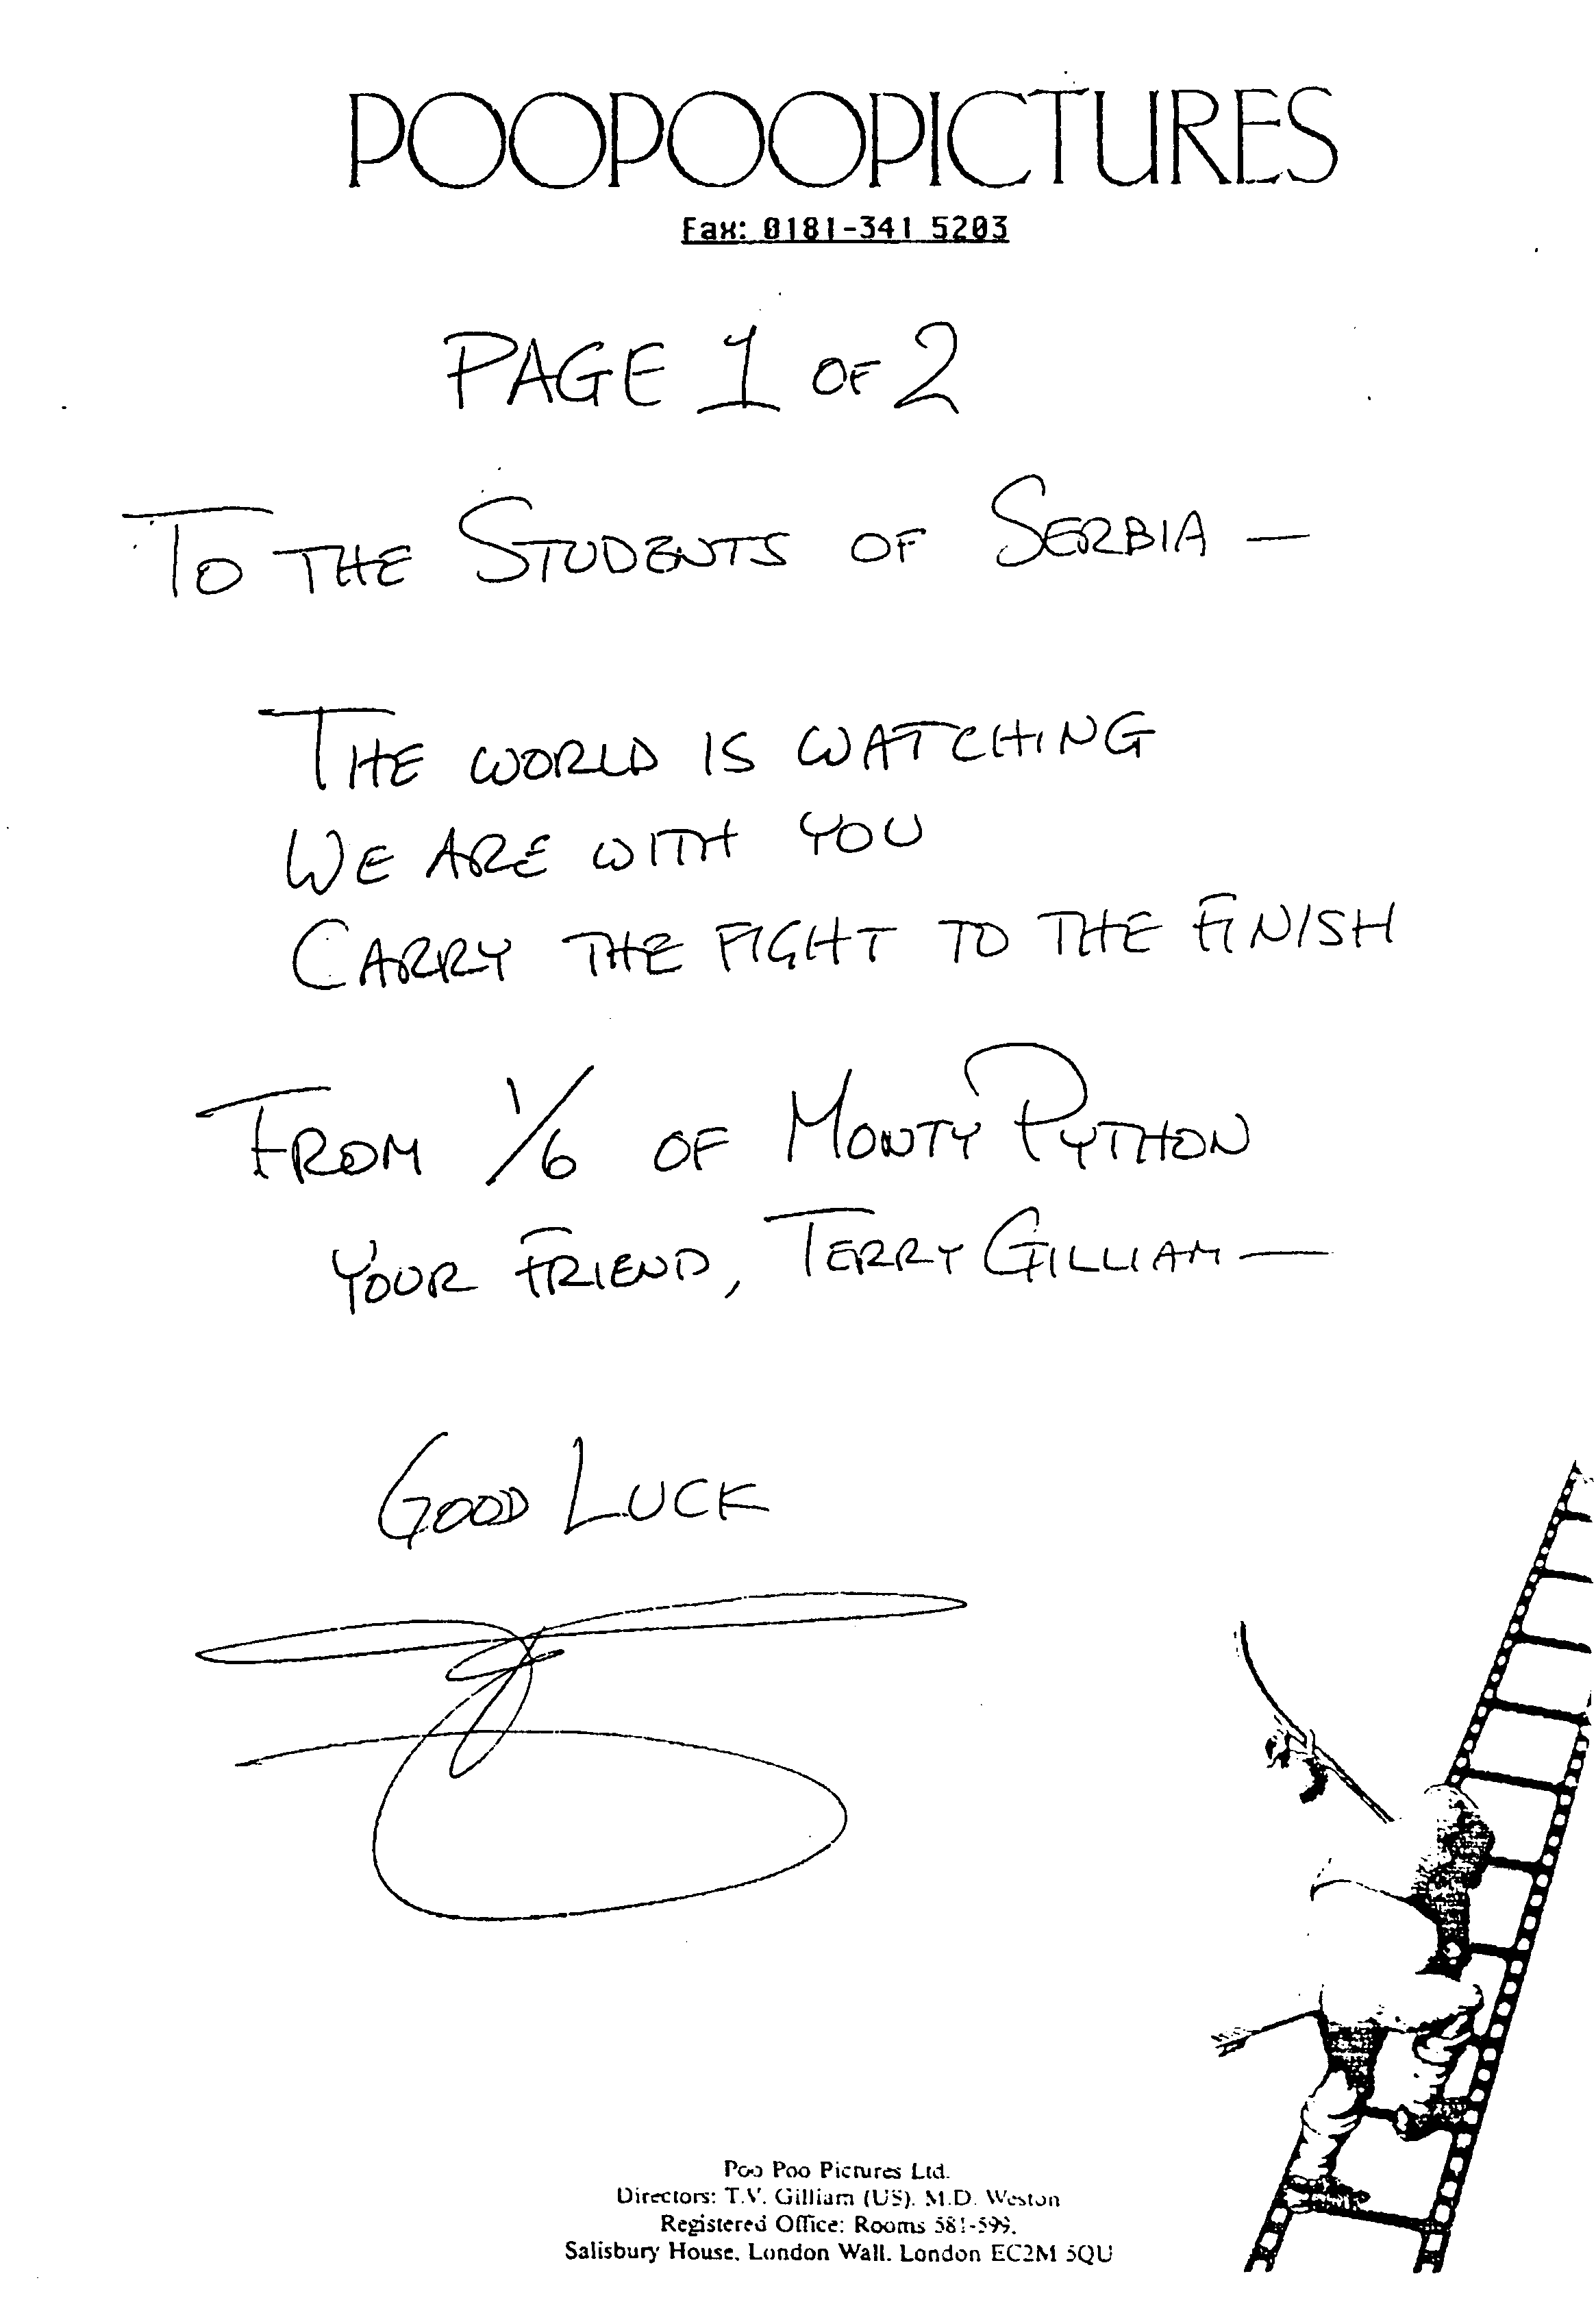 POOPOOPICTURES
Fax: 0181-341 5203
PAGE 1 OF 2
TO THE STUDENTS OF SERBIA —
THE WORLD IS WATCHING
WE ARE WITH YOU
CARRY THE FIGHT TO THE FINISH
FROM 1/6 OF MONTY PYTHON
YOUR FRIEND, TERRY GILLIAM —
GOOD LUCK
Poo Poo Pictures Ltd.
Directors: T.V. Gilliam (US). M.D. Weston
Registered Office: Rooms 581-599,
Salisbury House, London Wall. London EC2M 5QU